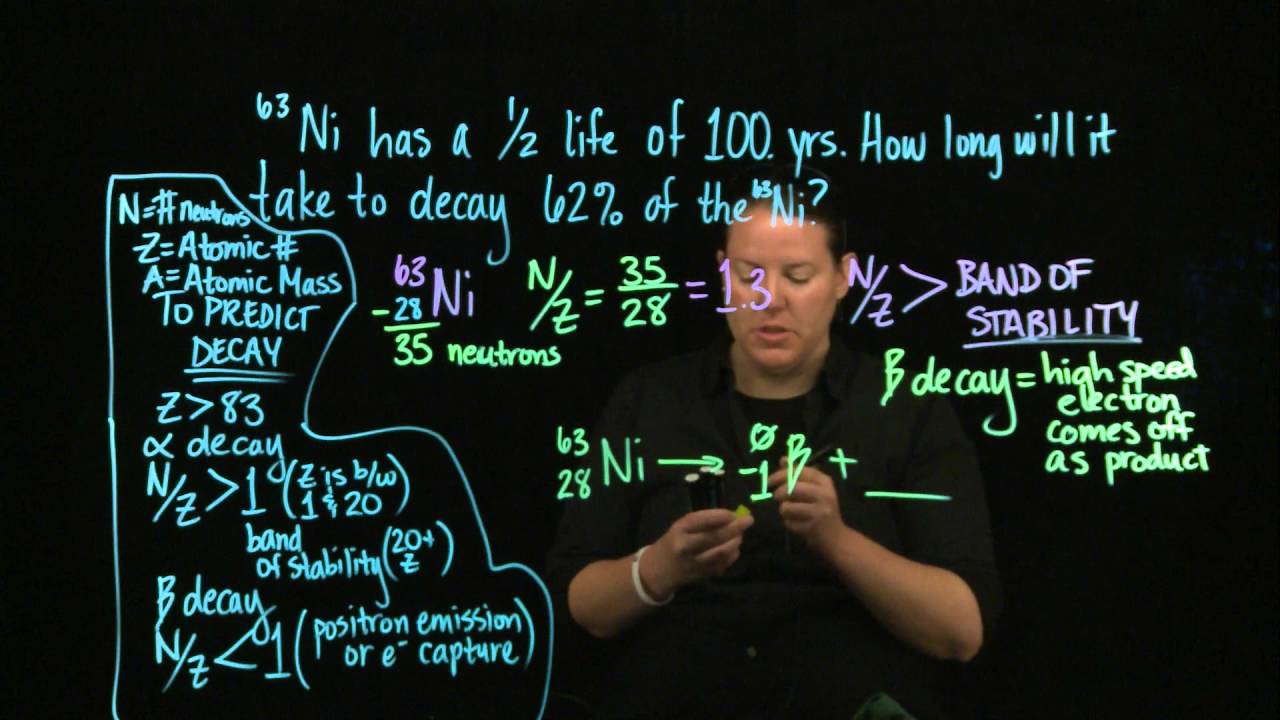 63Ni has a 1/2 life of 100. yrs. How long will it
take to decay 62% of the 63Ni?
N=# neutrons
Z=Atomic #
A=Atomic Mass
TO PREDICT
DECAY
Z>83
α decay
N/Z>1 (Z is b/w 1 & 20)
band
of stability (20+ Z)
β decay
N/Z<1 (positron emission
or e- capture)
63
-28 Ni
35 neutrons
N/Z = 35/28 = 1.3
N/Z > BAND OF
STABILITY
β decay = high speed
electron
comes off
as product
63 28 Ni → 0 -1 β + ___